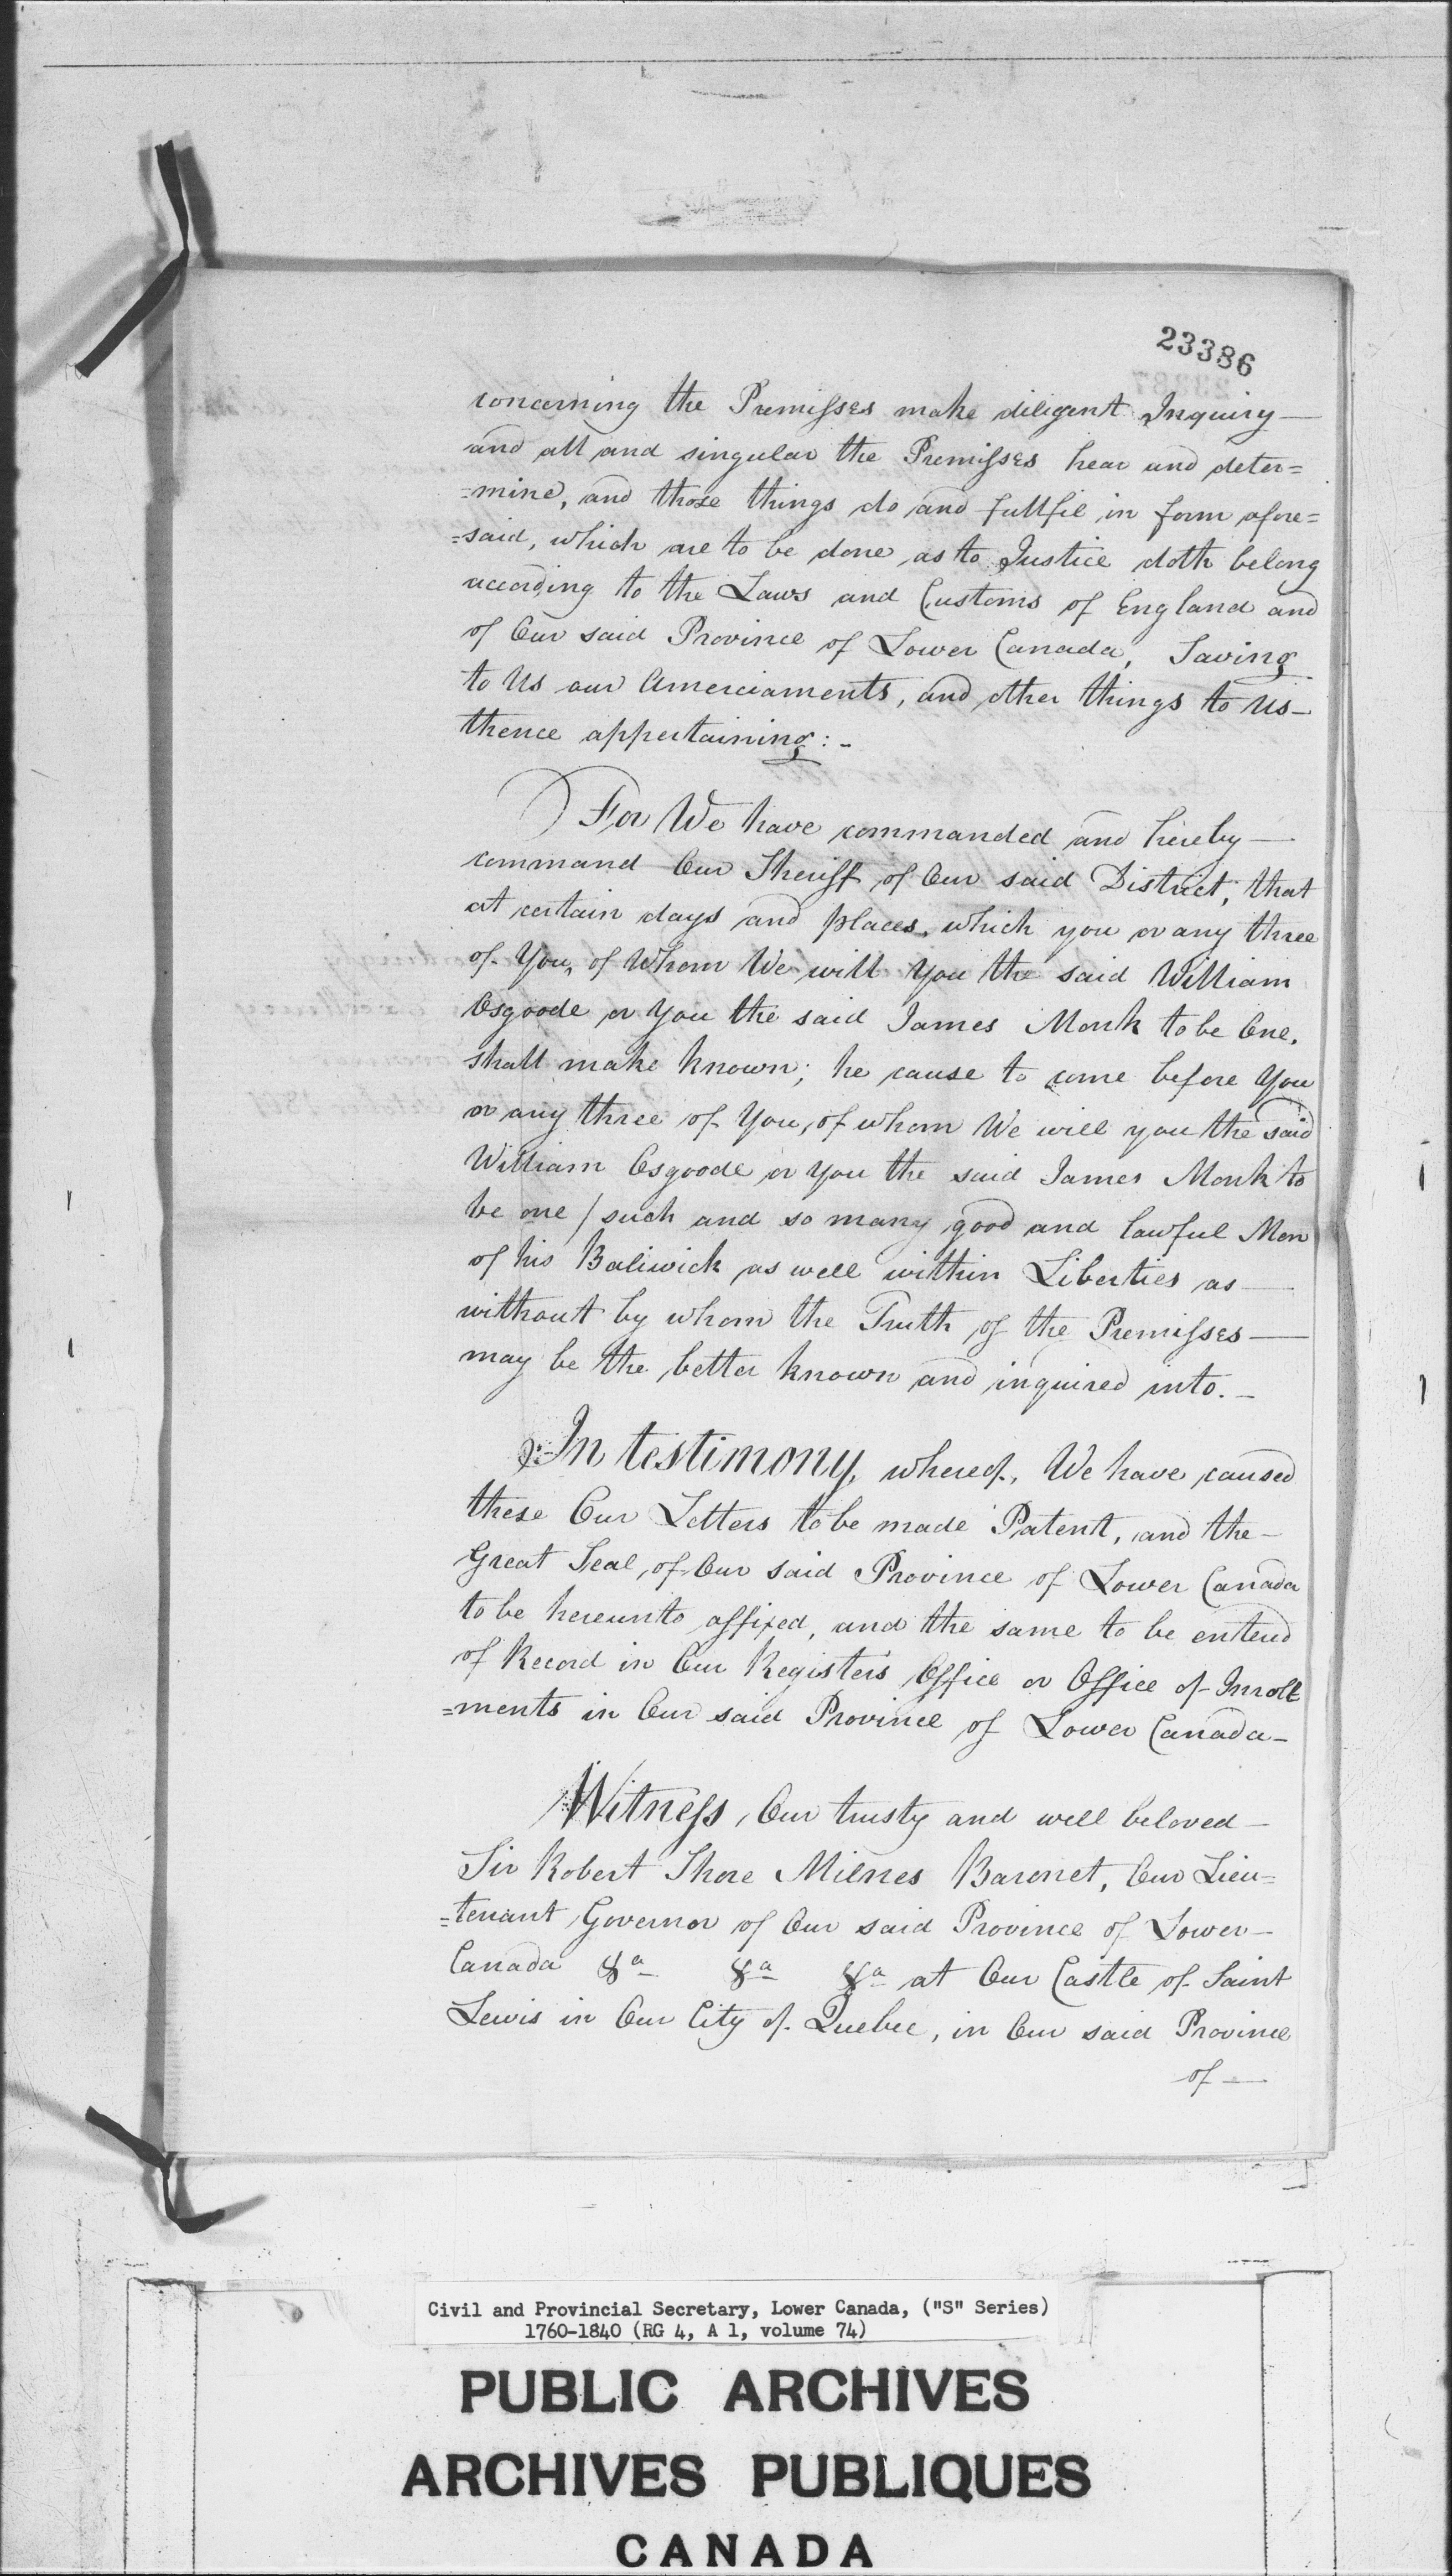 23386
concerning the Premisses make diligent Inquiry—
and all and singular the Premisses hear and deter=
=mine, and those things do and fullfil in form afore=
=said, which are to be done as to Justice doth belong
according to the Laws and Customs of England and
of Our said Province of Lower Canada, Saving
to Us our Amerciaments, and other things to Us—
thence appertaining:-
For We have commanded and hereby—
command Our Sheriff of Our said District, that
at certain days and places, which you or any three
of You, of Whom We will You the said William
Osgoode or You the said James Monk to be One,
shall make known; he cause to come before You
or any three of You, of whom We will you the said
William Osgoode or You the said James Monk to
be one / such and so many good and lawful Men
of his Baliwick as well within Liberties as—
without by whom the Truth of the Premisses—
may be the better known and inquired into.-
In testimony, whereof, We have caused
these Our Letters to be made Patent, and the—
Great Seal, of Our said Province of Lower Canada
to be hereunto affixed, and the same to be entered
of Record in Our Register's Office or Office of Inroll
=ments in Our said Province of Lower Canada-
Witness, Our trusty and well beloved—
Sir Robert Shore Milnes Baronet, Our Lieu=
=tenant Governor of Our said Province of Lower—
Canada &a &a &a at Our Castle of Saint
Lewis in Our City of Quebec, in Our said Province
of—
Civil and Provincial Secretary, Lower Canada, ("S" Series)
1760-1840 (RG 4, A 1, volume 74)
PUBLIC ARCHIVES
ARCHIVES PUBLIQUES
CANADA